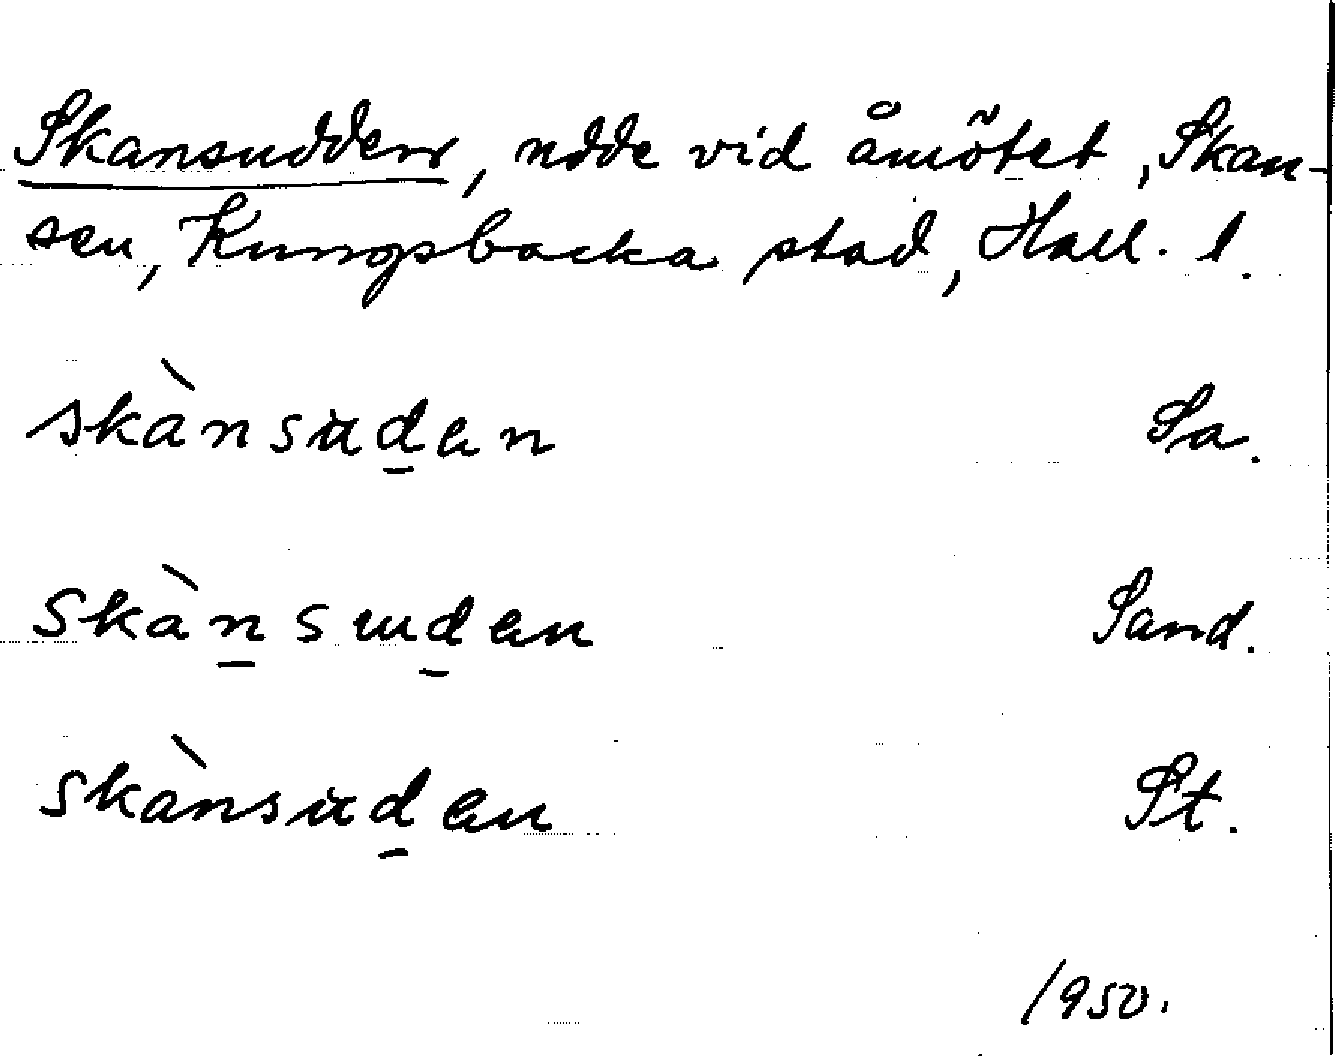 Skansudden, udde vid åmötet, Skan-
sen, Kungsbacka stad, Hall. l.
skànsudan Sa.
skàn̲sud̲an Sand.
skànsud̲an St.
1950.